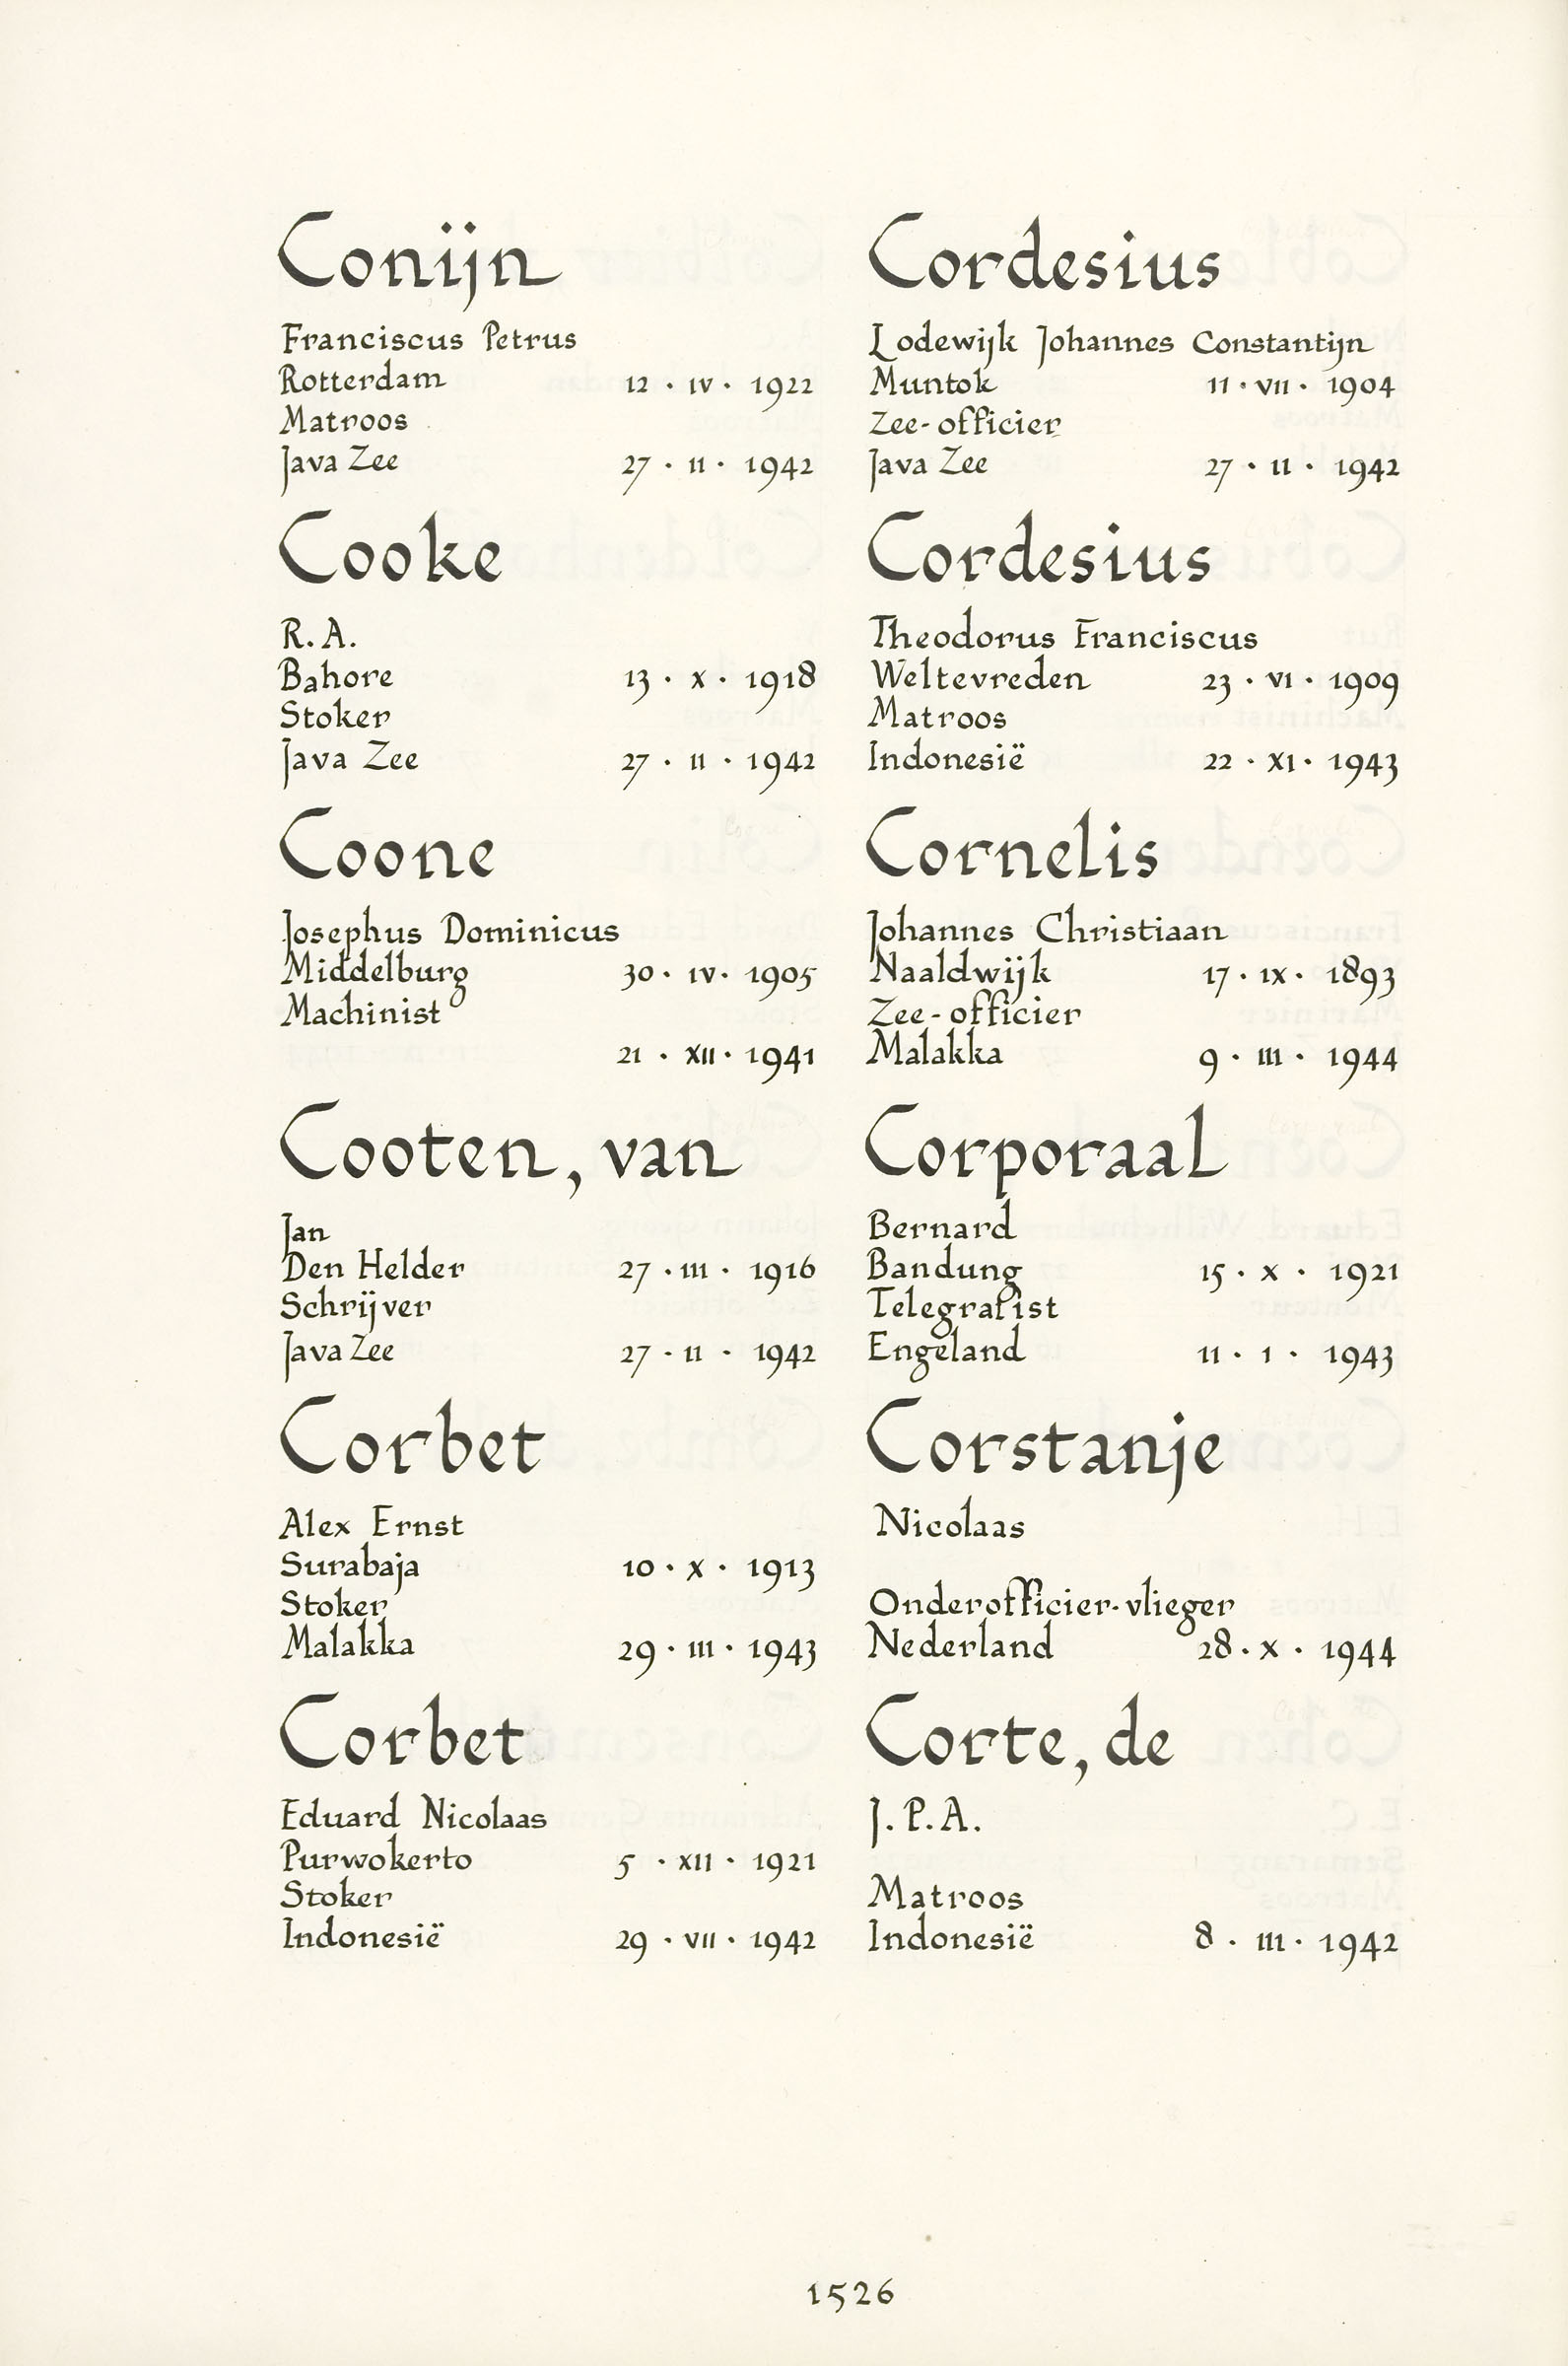 Conijn
Franciscus Petrus
Rotterdam 12 · IV · 1922
Matroos
Java Zee 27 · II · 1942
Cooke
R. A.
Bahore 13 · X · 1918
Stoker
Java Zee 27 · II · 1942
Coone
Josephus Dominicus
Middelburg 30 · IV · 1905
Machinist
21 · XII · 1941
Cooten, van
Jan
Den Helder 27 · III · 1916
Schrijver
Java Zee 27 · II · 1942
Corbet
Alex Ernst
Surabaja 10 · X · 1913
Stoker
Malakka 29 · III · 1943
Corbet
Eduard Nicolaas
Purwokerto 5 · XII · 1921
Stoker
Indonesië 29 · VII · 1942
Cordesius
Lodewijk Johannes Constantijn
Muntok 11 · VII · 1904
Zee-officier
Java Zee 27 · II · 1942
Cordesius
Theodorus Franciscus
Weltevreden 23 · VI · 1909
Matroos
Indonesië 22 · XI · 1943
Cornelis
Johannes Christiaan
Naaldwijk 17 · IX · 1893
Zee-officier
Malakka 9 · III · 1944
Corporaal
Bernard
Bandung 15 · X · 1921
Telegrafist
Engeland 11 · I · 1943
Corstanje
Nicolaas
Onderofficier-vlieger
Nederland 28 · X · 1944
Corte, de
J. P. A.
Matroos
Indonesië 8 · III · 1942
1526